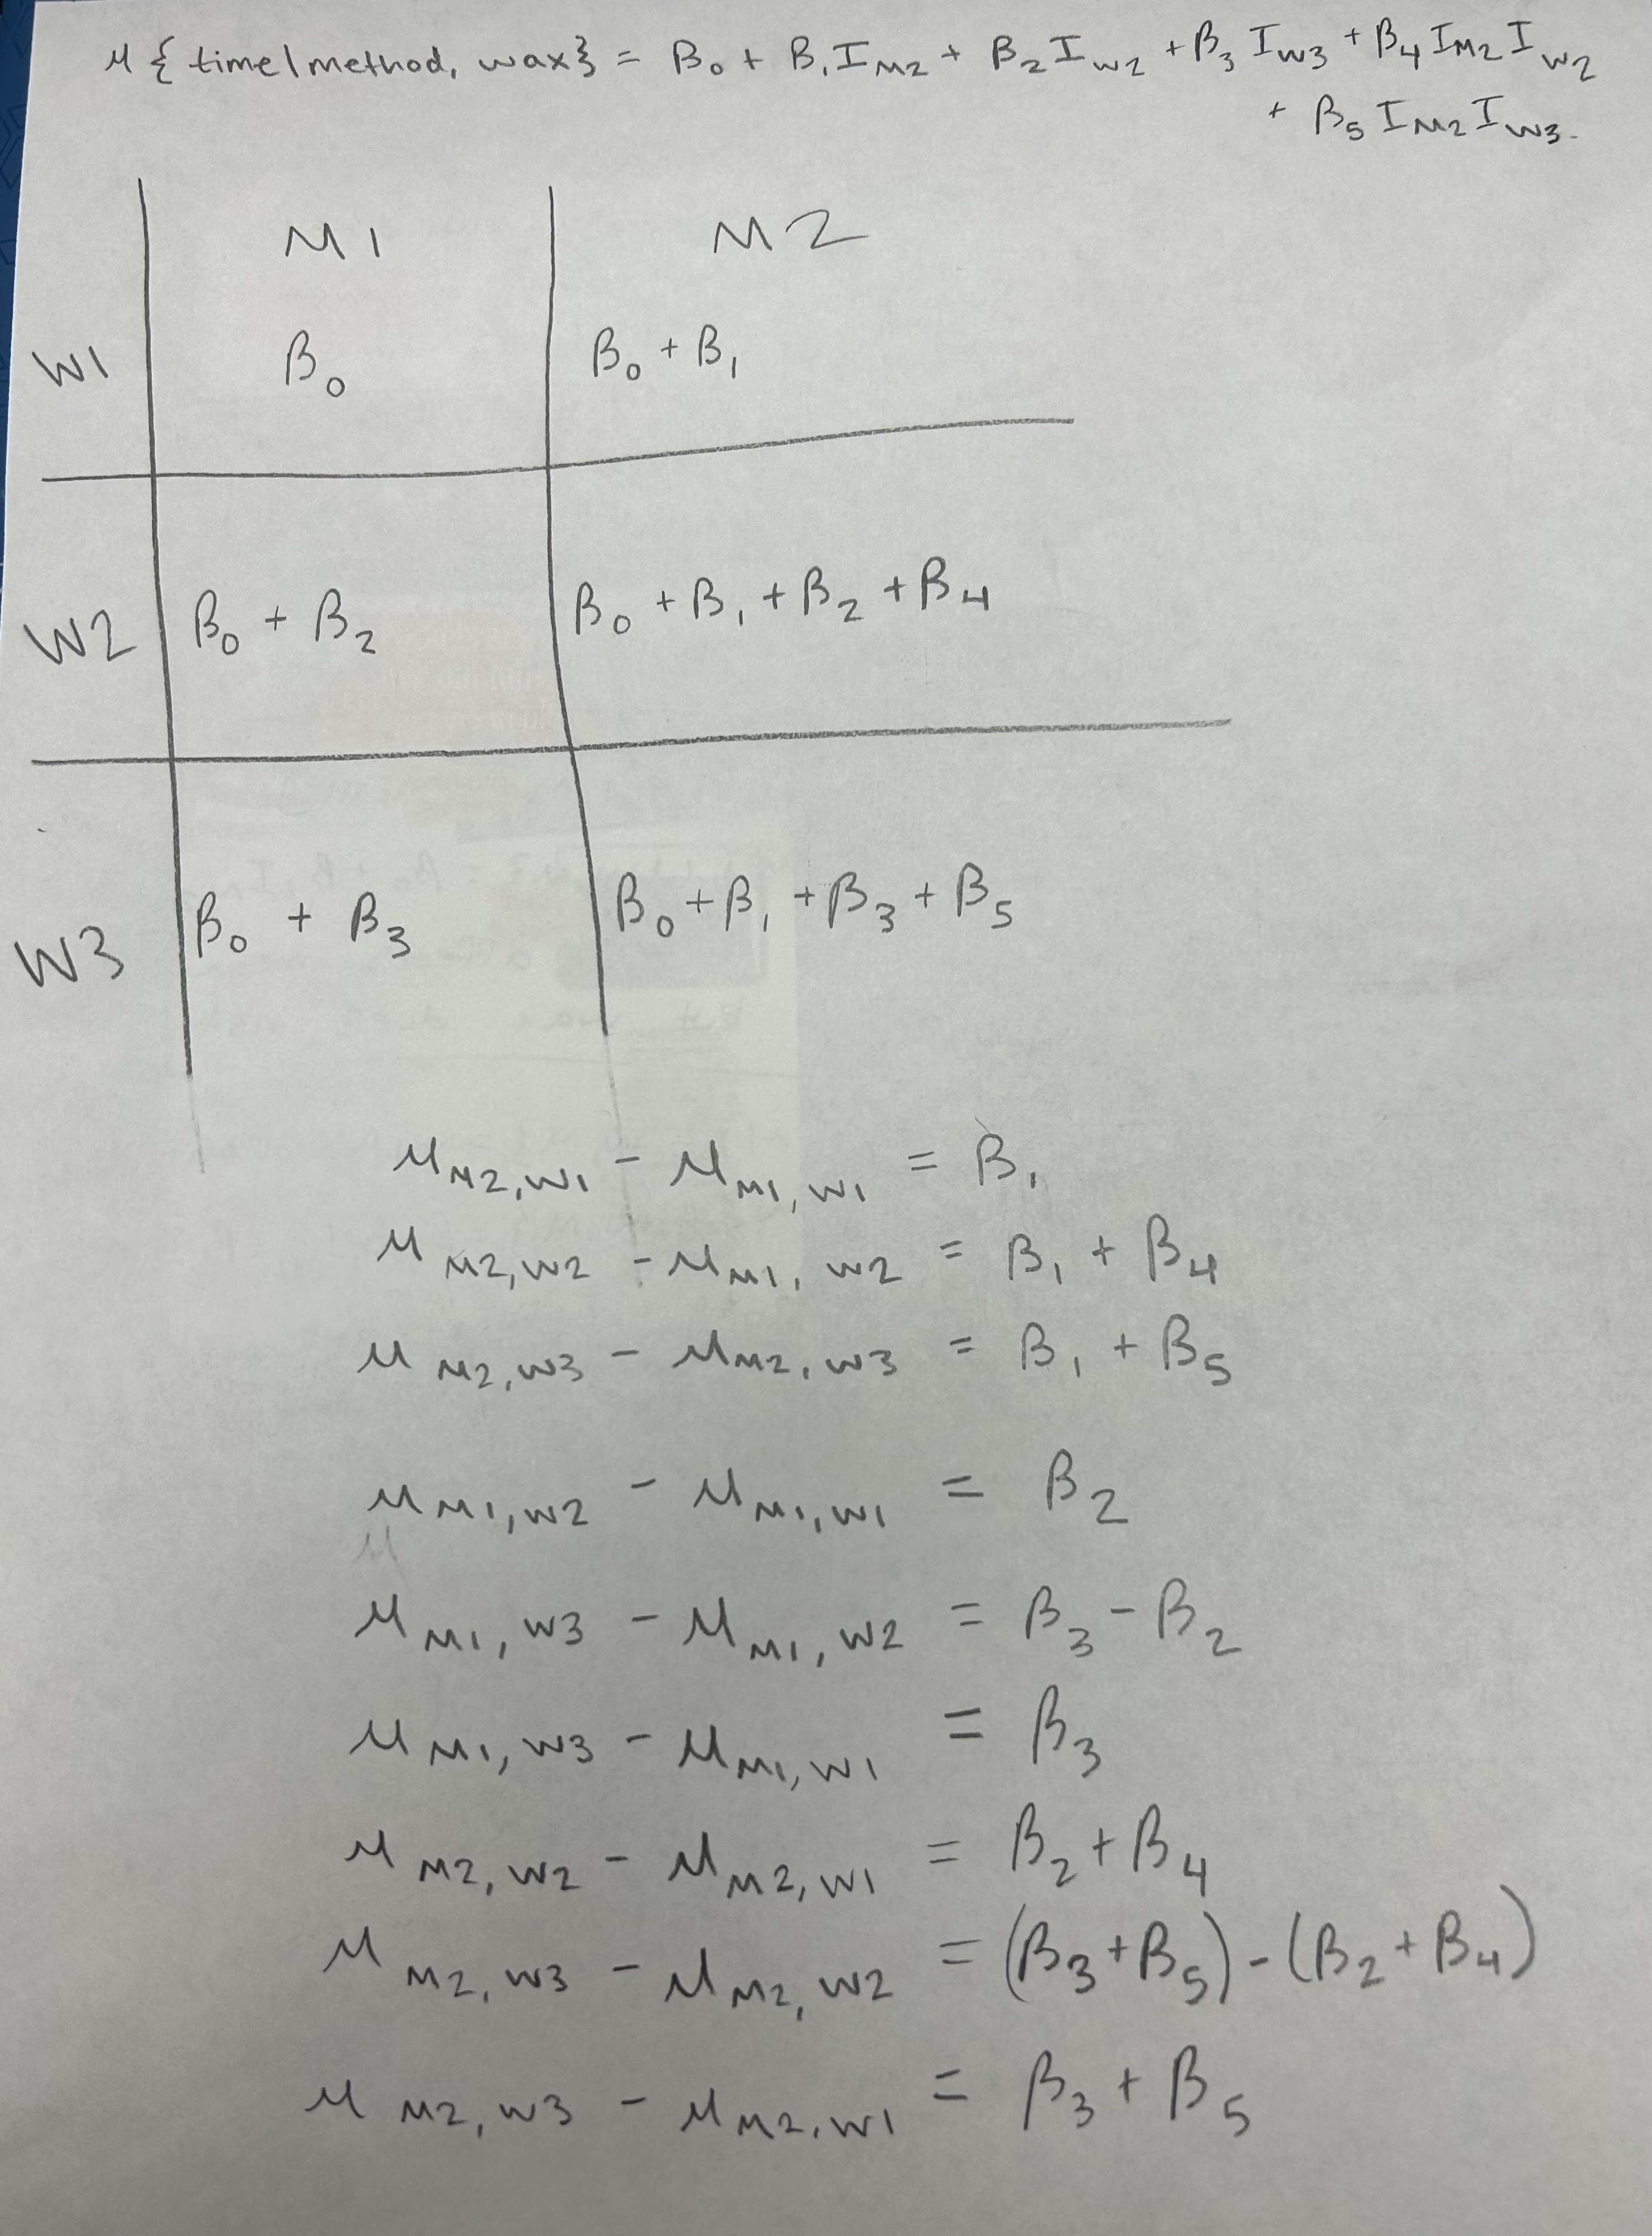 μ{time|method, wax} = β₀ + β₁I_M2 + β₂I_W2 + β₃I_W3 + β₄I_M2 I_W2
+ β₅I_M2 I_W3.
M1 M2
W1 β₀ β₀ + β₁
W2 β₀ + β₂ β₀ + β₁ + β₂ + β₄
W3 β₀ + β₃ β₀ + β₁ + β₃ + β₅
μ_M2,W1 - μ_M1,W1 = β₁
μ_M2,W2 - μ_M1,W2 = β₁ + β₄
μ_M2,W3 - μ_M2,W3 = β₁ + β₅
μ_M1,W2 - μ_M1,W1 = β₂
μ_M1,W3 - μ_M1,W2 = β₃ - β₂
μ_M1,W3 - μ_M1,W1 = β₃
μ_M2,W2 - μ_M2,W1 = β₂ + β₄
μ_M2,W3 - μ_M2,W2 = (β₃ + β₅) - (β₂ + β₄)
μ_M2,W3 - μ_M2,W1 = β₃ + β₅